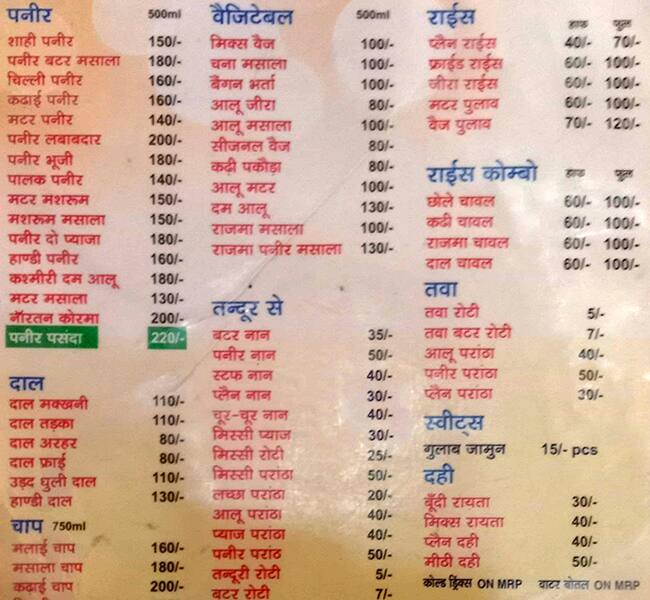 पनीर 500ml
शाही पनीर 150/-
पनीर बटर मसाला 180/-
चिल्ली पनीर 160/-
कढाई पनीर 160/-
मटर पनीर 140/-
पनीर लबाबदार 200/-
पनीर भूजी 180/-
पालक पनीर 140/-
मटर मशरूम 150/-
मशरूम मसाला 150/-
पनीर दो प्याजा 180/-
हाण्डी पनीर 160/-
कश्मीरी दम आलू 180/-
मटर मसाला 130/-
नॉरतन कोरमा 200/-
पनीर पसंदा 220/-
दाल
दाल मक्खनी 110/-
दाल तड़का 110/-
दाल अरहर 80/-
दाल फ्राई 80/-
उड़द धुली दाल 110/-
हाण्डी दाल 130/-
चाप 750ml
मलाई चाप 160/-
मसाला चाप 180/-
कढ़ाई चाप 200/-
वैजिटेबल 500ml
मिक्स वैज 100/-
चना मसाला 100/-
बैगन भर्ता 100/-
आलू जीरा 80/-
आलू मसाला 100/-
सीजनल वैज 80/-
कढ़ी पकौड़ा 80/-
आलू मटर 100/-
दम आलू 130/-
राजमा मसाला 100/-
राजमा पनीर मसाला 130/-
तन्दूर से
बटर नान 35/-
पनीर नान 50/-
स्टफ नान 40/-
प्लैन नान 30/-
चूर-चूर नान 40/-
मिस्सी प्याज 30/-
मिस्सी रोटी 25/-
मिस्सी परांठा 50/-
लच्छा परांठा 20/-
आलू परांठा 40/-
प्याज परांठा 40/-
पनीर परांठ 50/-
तन्दूरी रोटी 5/-
बटर रोटी 7/-
राईस हाफ फुल
प्लैन राईस 40/- 70/-
फ्राईड राईस 60/- 100/-
जीरा राईस 60/- 100/-
मटर पुलाव 60/- 100/-
वैज पुलाव 70/- 120/-
राईस कोम्बो हाफ फुल
छोले चावल 60/- 100/-
कढी चावल 60/- 100/-
राजमा चावल 60/- 100/-
दाल चावल 60/- 100/-
तवा
तवा रोटी 5/-
तवा बटर रोटी 7/-
आलू परांठा 40/-
पनीर परांठा 50/-
प्लैन परांठा 30/-
स्वीट्स
गुलाब जामुन 15/- pcs
दही
बूँदी रायता 30/-
मिक्स रायता 40/-
प्लैन दही 40/-
मीठी दही 50/-
कोल्ड ड्रिंक्स ON MRP वाटर बोतल ON MRP